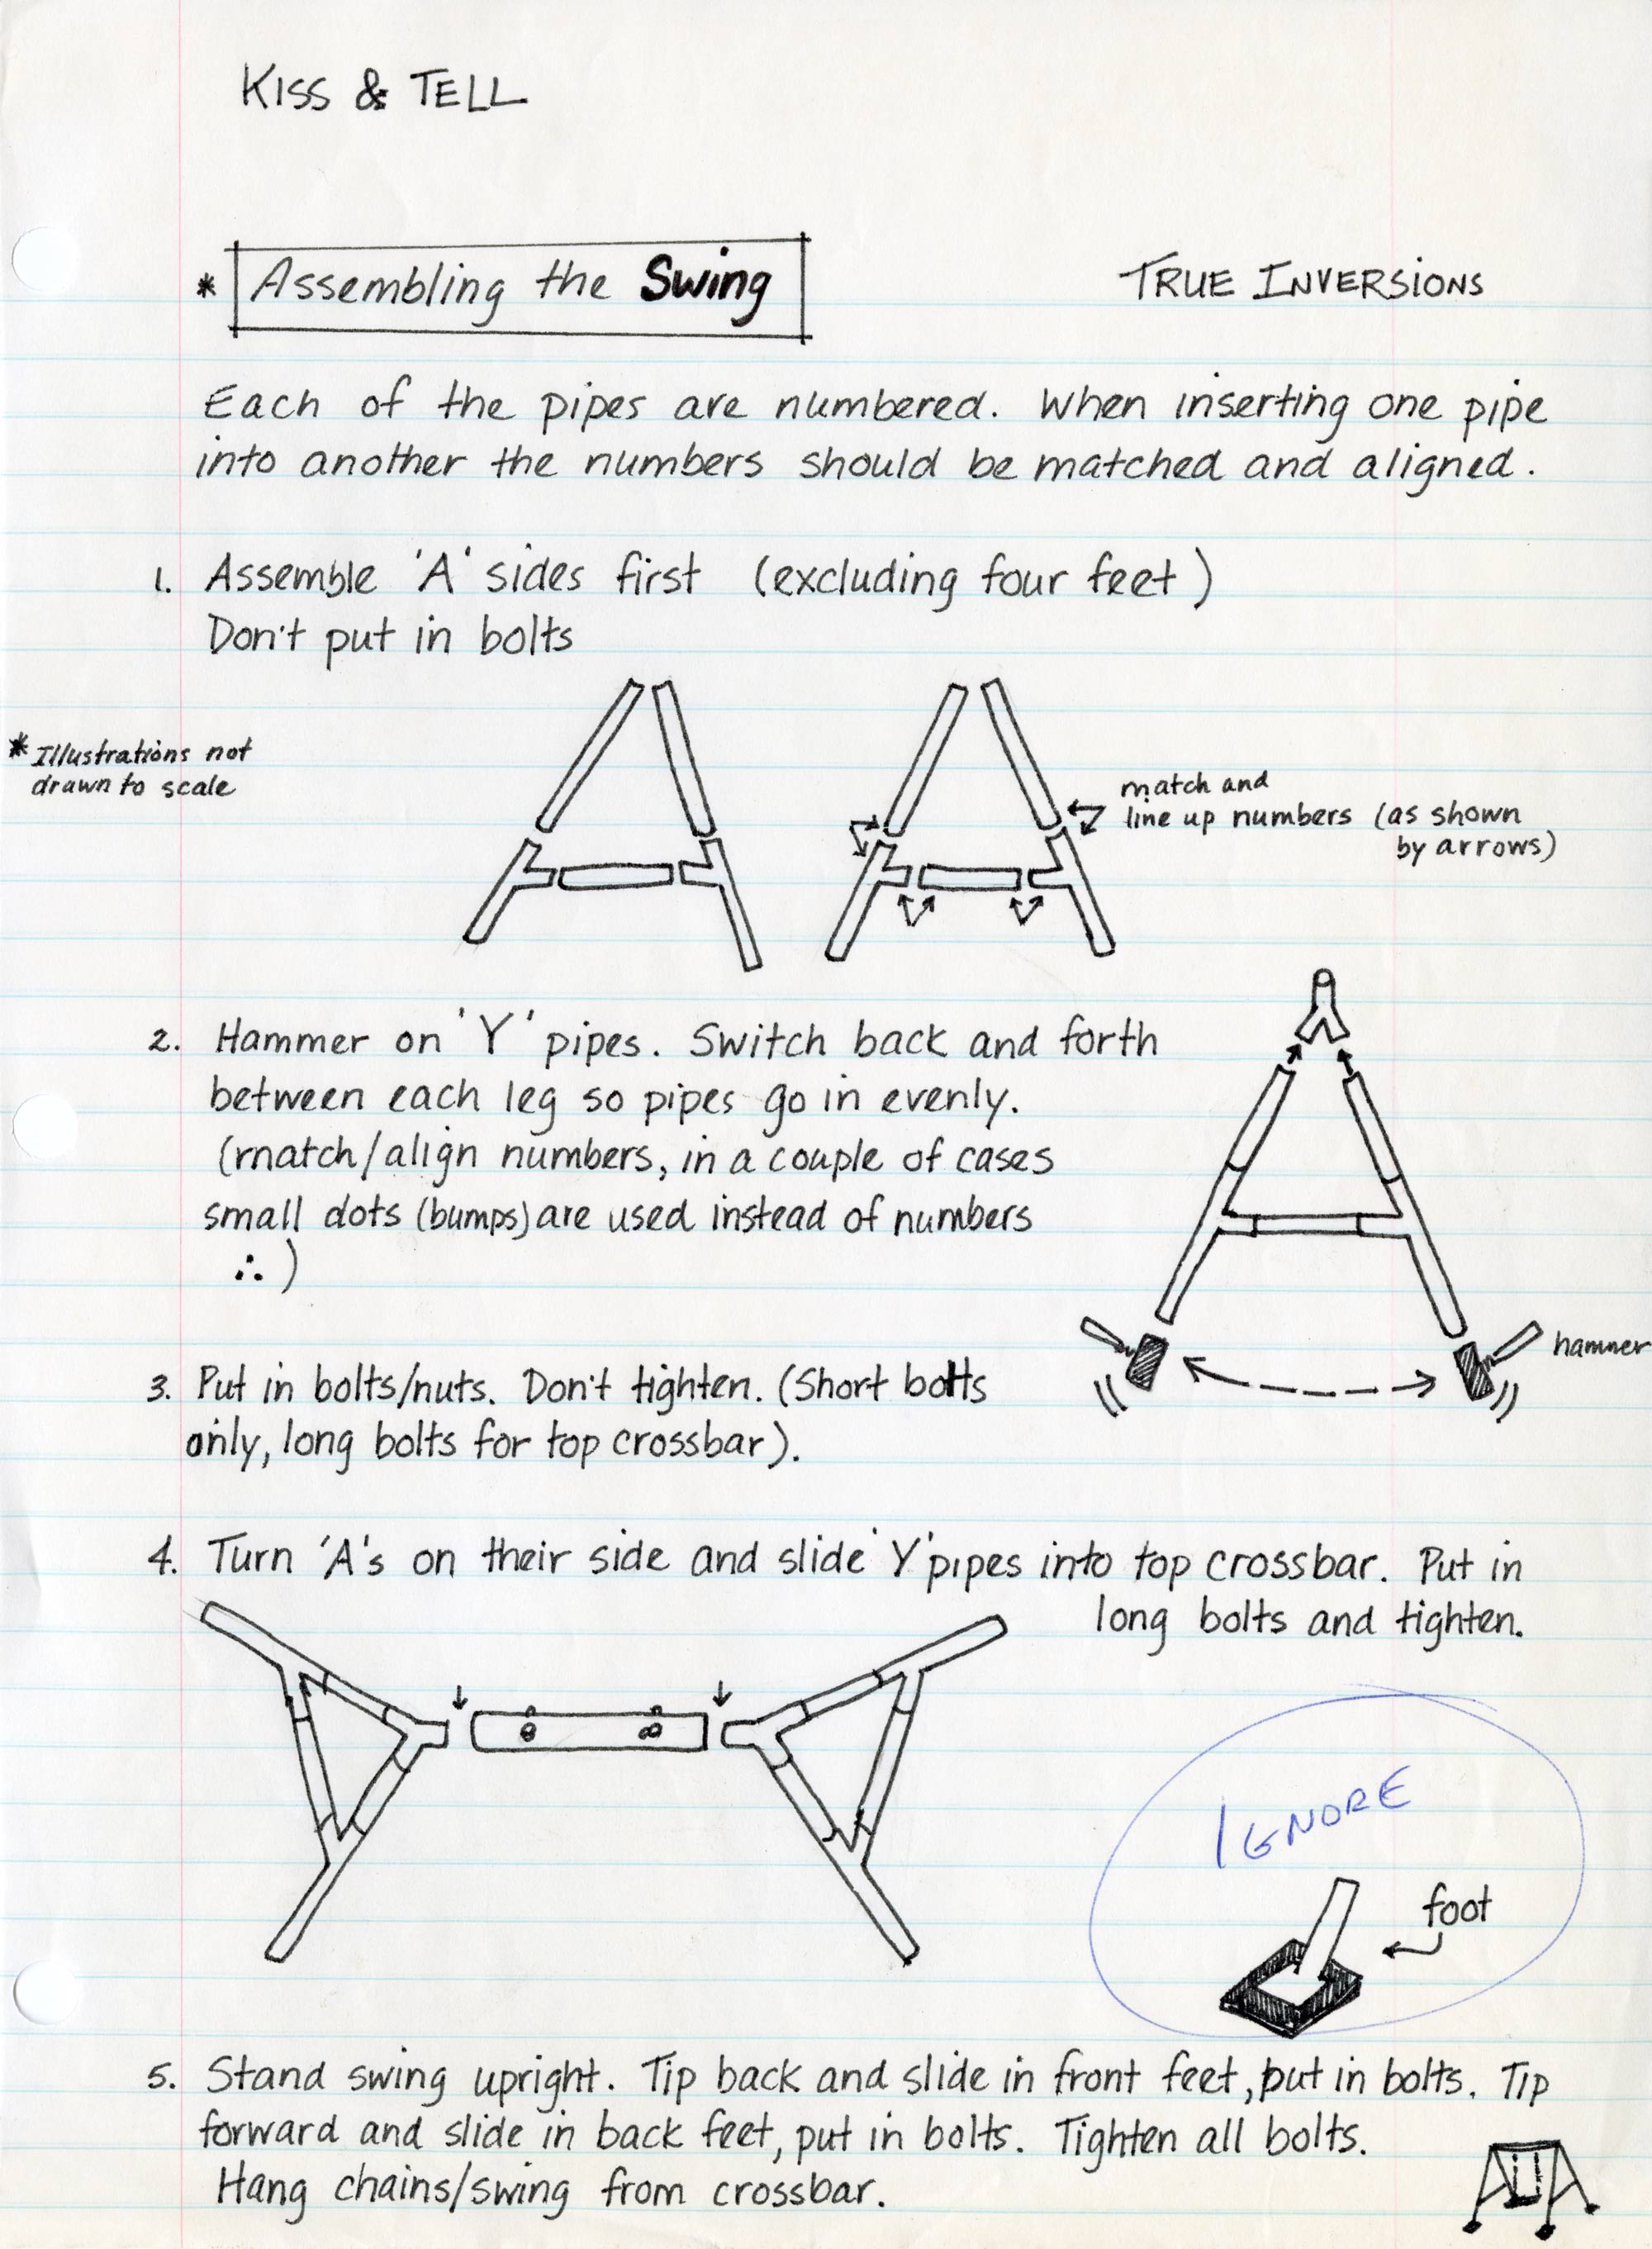 KISS & TELL
* Assembling the Swing
TRUE INVERSIONS
Each of the pipes are numbered. When inserting one pipe
into another the numbers should be matched and aligned.
1. Assemble 'A' sides first (excluding four feet)
Don't put in bolts
* Illustrations not
drawn to scale
match and
line up numbers (as shown
by arrows)
2. Hammer on 'Y' pipes. Switch back and forth
between each leg so pipes go in evenly.
(match/align numbers, in a couple of cases
small dots (bumps) are used instead of numbers
∴ )
hammer
3. Put in bolts/nuts. Don't tighten. (Short bolts
only, long bolts for top crossbar).
4. Turn 'A's on their side and slide 'Y' pipes into top crossbar. Put in
long bolts and tighten.
IGNORE
foot
5. Stand swing upright. Tip back and slide in front feet, put in bolts. Tip
forward and slide in back feet, put in bolts. Tighten all bolts.
Hang chains/swing from crossbar.